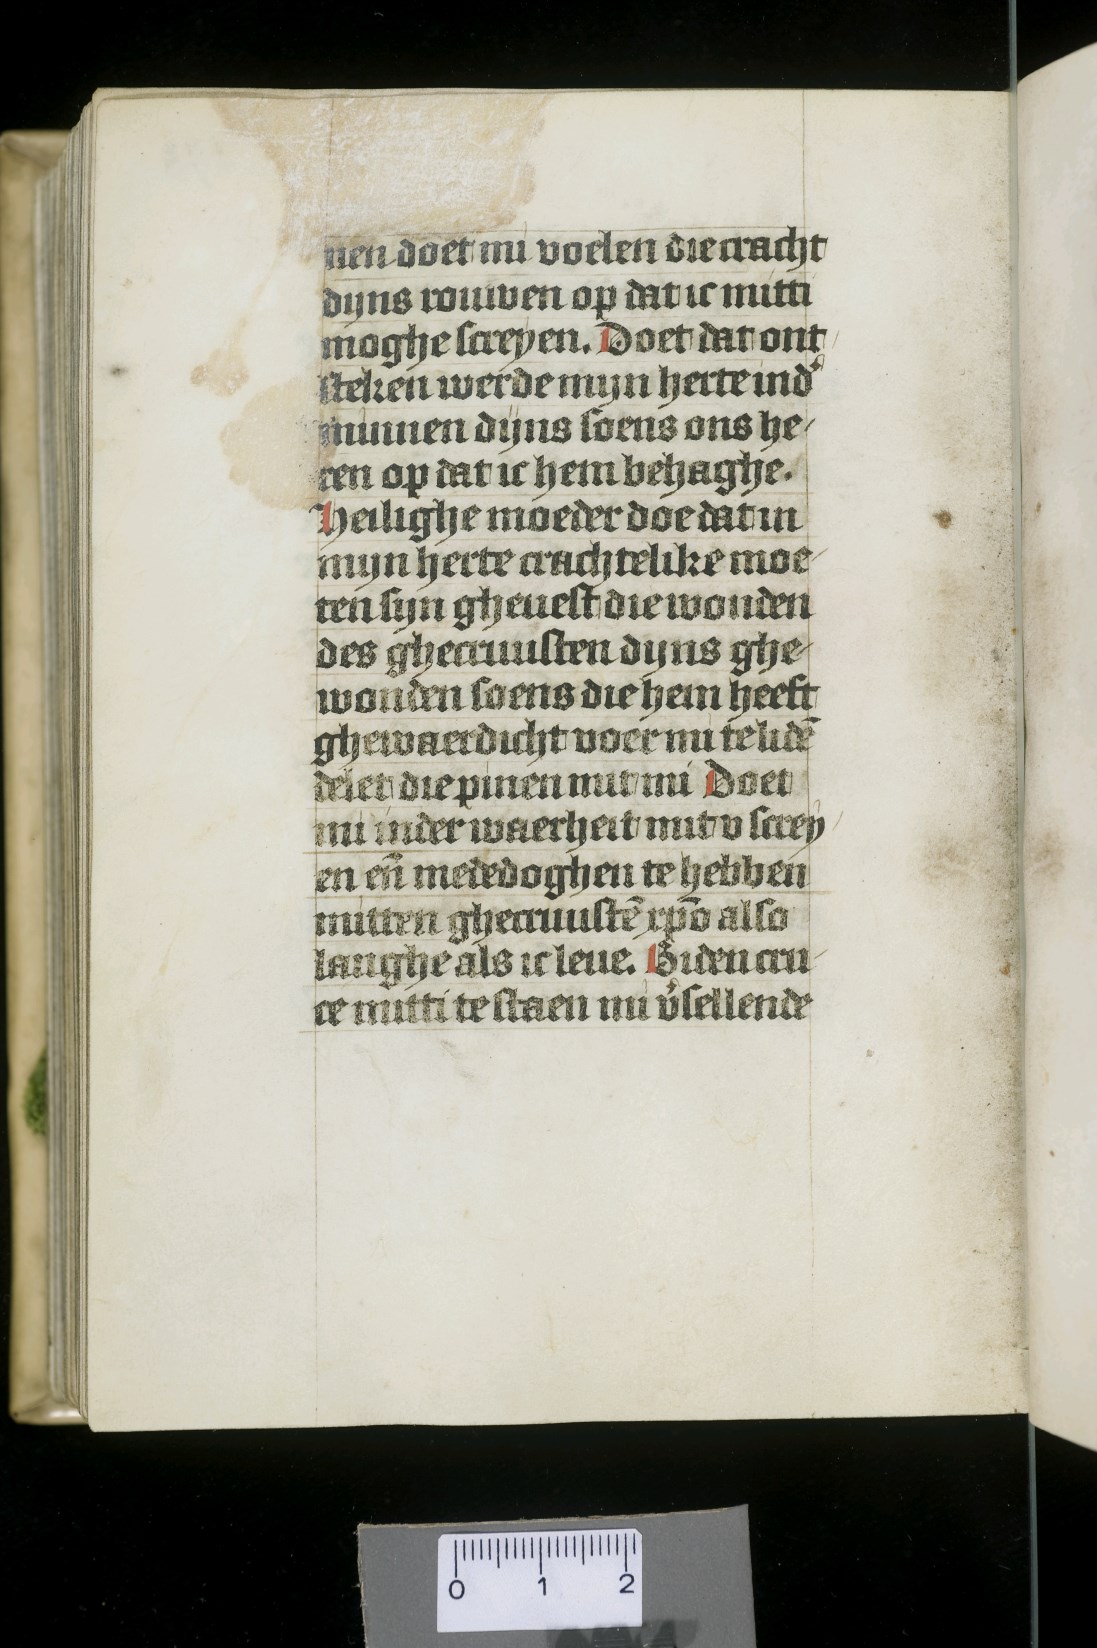 nen doet mi voelen die cracht
dijns rouwen op dat ic mitti
moghe screyen. Doet dat ont
steken werde mijn herte ind᾽
minnen dijns soens ons he-
ren op dat ic hem behaghe.
Heilighe moeder doe dat in
mijn herte crachtelike moe-
ten sijn gheuest die wonden
des ghecruusten dijns ghe-
wonden soens die hem heeft
ghewaerdicht voer mi te lidē
deiet die pinen mit mi Doet
mi inder waerheit mit v screy
en eñ mededoghen te hebben
mitten ghecruustē xp̄o also
langhe als ic leue. Biden cru-
ce mitti te staen mi v᾽sellende
0 1 2